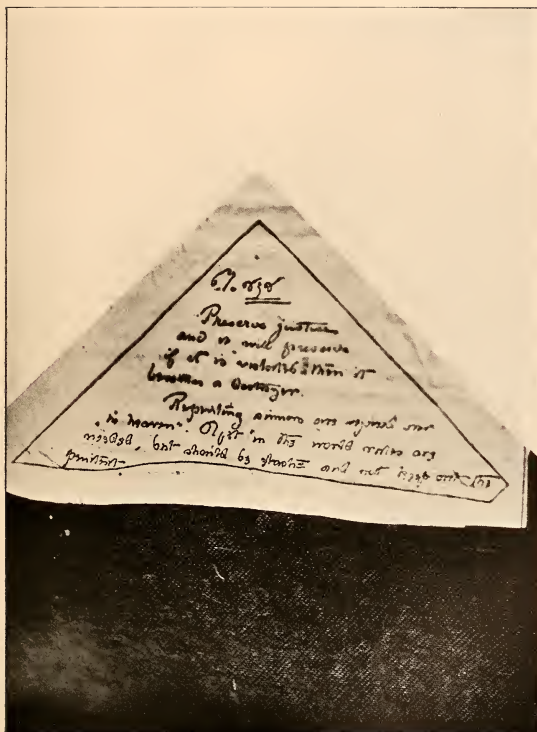 Preserve justice
and it will preserve
if it is violated then it
becomes a Destroyer.
Repenting sinners are
in heaven. in the world rules are
needed, but should be and not the
penitent